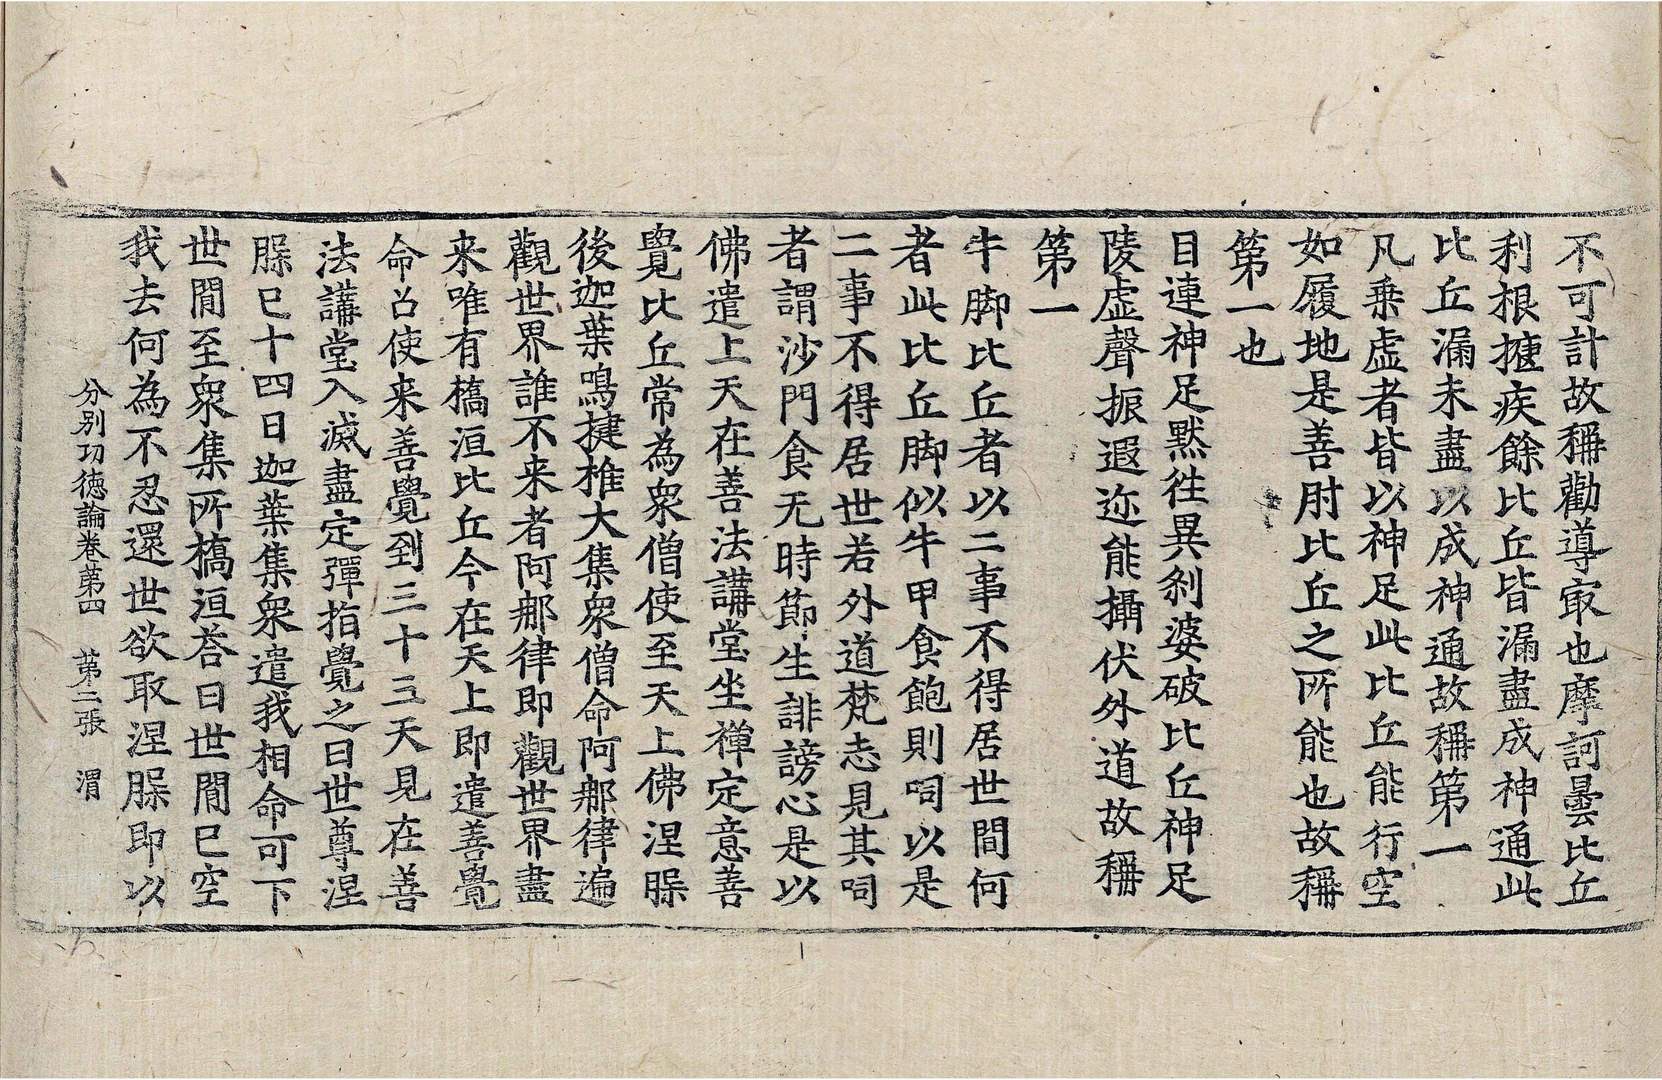 不可計故稱勸導㝡也摩訶曇比丘
利根揵疾餘比丘皆漏盡成神通此
比丘漏未盡以成神通故稱第一
凡乗虛者皆以神足此比丘能行空
如履地是善肘比丘之所能也故稱
第一也
目連神足黙徃異刹婆破比丘神足
陵虛聲振遐迩能攝伏外道故稱
第一
牛脚比丘者以二事不得居世間何
者此比丘脚似牛甲食飽則呞以是
二事不得居世若外道梵志見其呞
者謂沙門食无時節生誹謗心是以
佛遣上天在善法講堂坐禪定意善
覺比丘常為衆僧使至天上佛涅脲
後迦葉鳴揵椎大集衆僧命阿那律遍
觀世界誰不来者阿那律即觀世界盡
来唯有橋洹比丘今在天上即遣善覺
命召使来善覺到三十三天見在善
法講堂入滅盡定彈指覺之曰世尊涅
脲巳十四日迦葉集衆遣我相命可下
世閒至衆集所橋洹荅曰世閒巳空
我去何為不忍還世欲取涅脲即以
分别功德論卷苐四　苐二張　渭